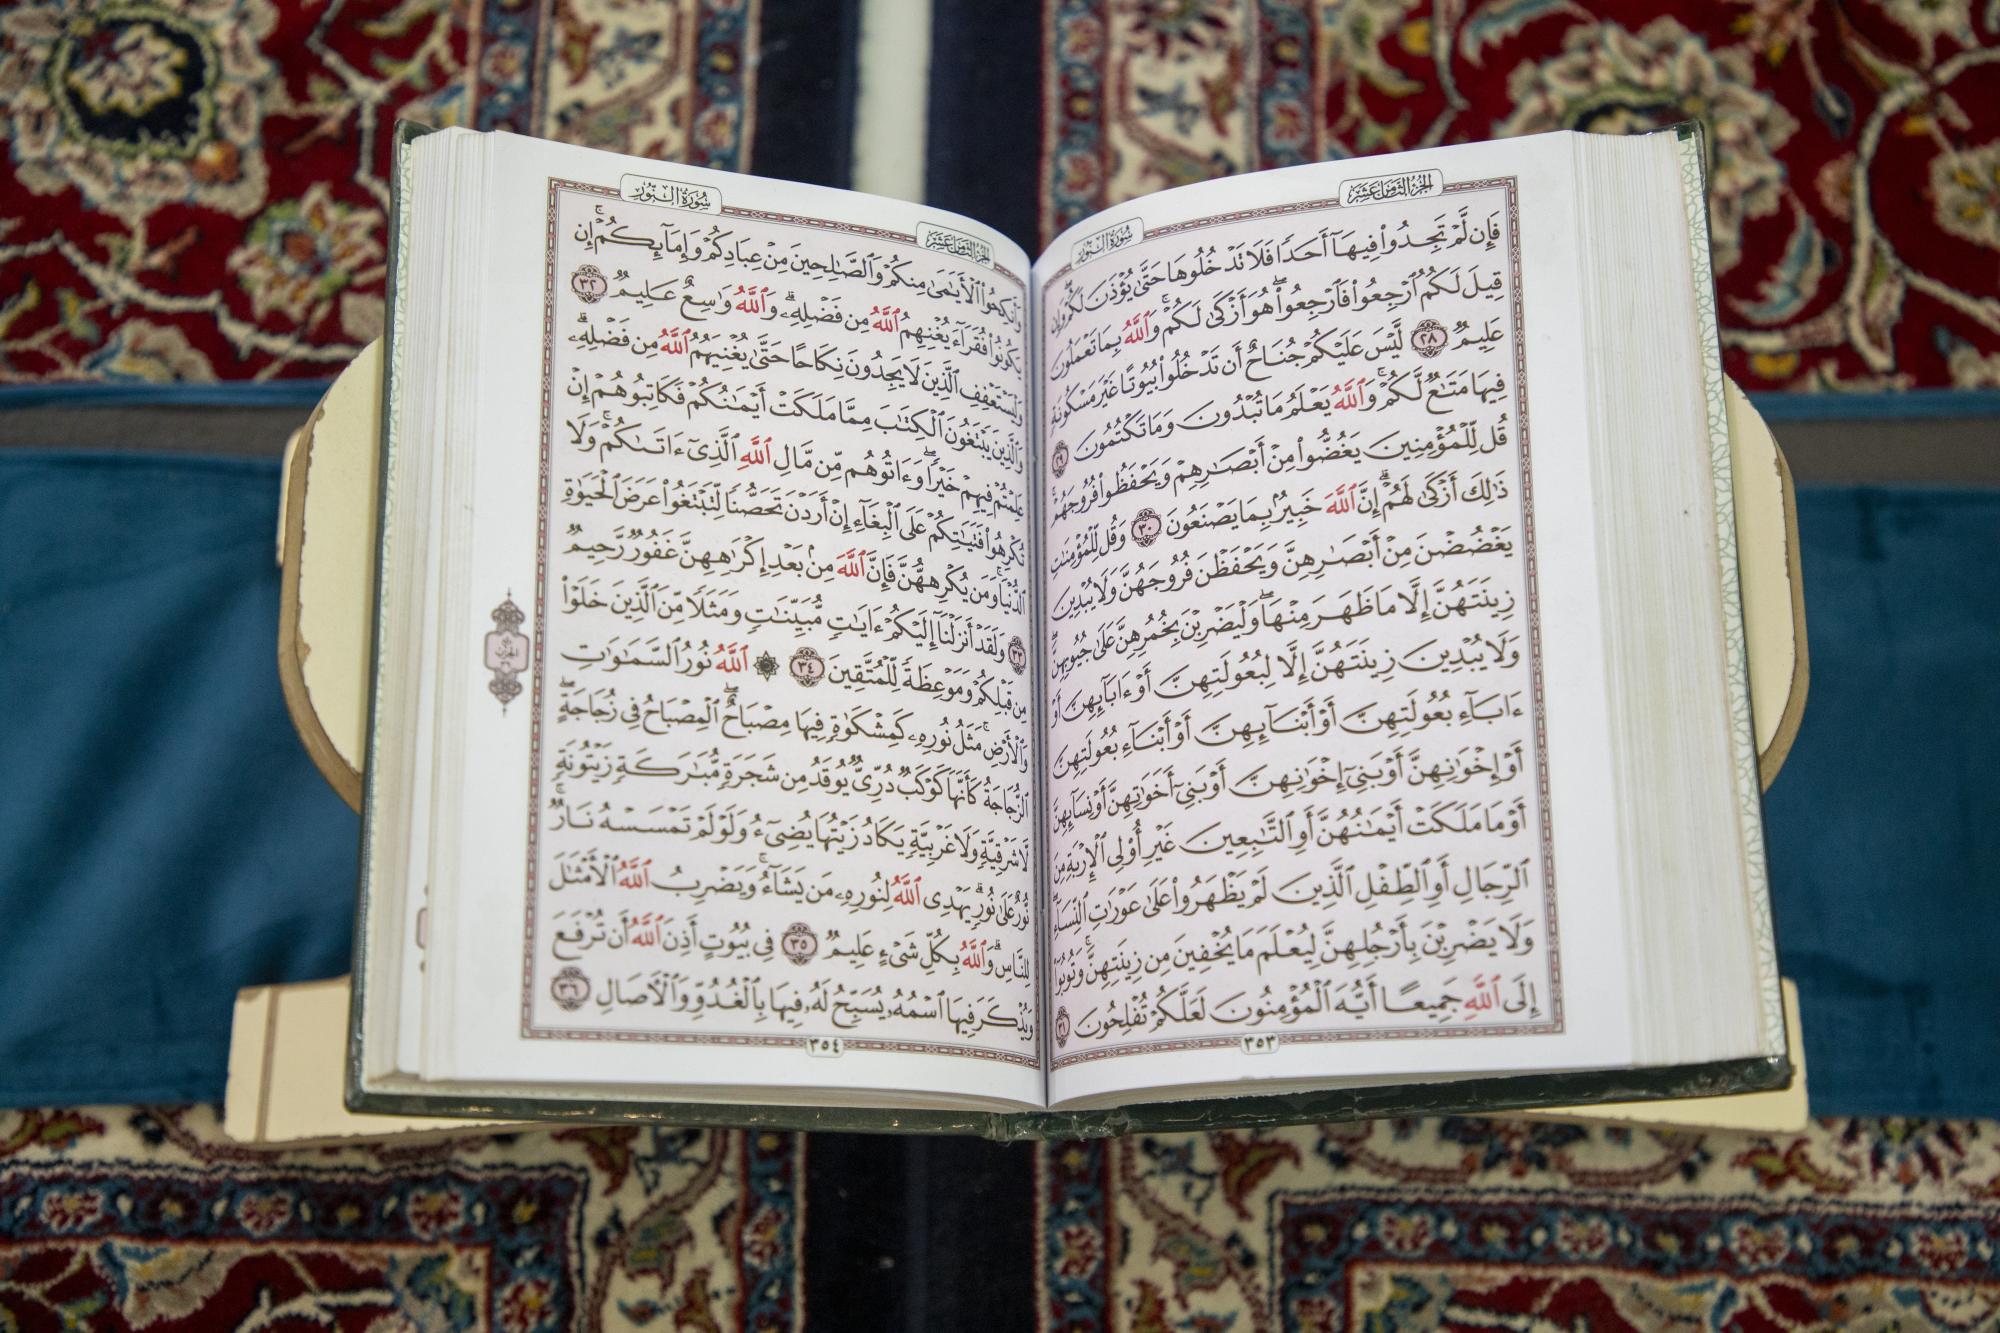 الجزء الثامن عشر
سورة النور
فَإِن لَّمْ تَجِدُوا۟ فِيهَآ أَحَدًا فَلَا تَدْخُلُوهَا حَتَّىٰ يُؤْذَنَ لَكُمْ ۖ وَإِن
قِيلَ لَكُمُ ٱرْجِعُوا۟ فَٱرْجِعُوا۟ ۖ هُوَ أَزْكَىٰ لَكُمْ ۚ وَٱللَّهُ بِمَا تَعْمَلُونَ
عَلِيمٌ ٢٨ لَّيْسَ عَلَيْكُمْ جُنَاحٌ أَن تَدْخُلُوا۟ بُيُوتًا غَيْرَ مَسْكُونَةٍ
فِيهَا مَتَٰعٌ لَّكُمْ ۚ وَٱللَّهُ يَعْلَمُ مَا تُبْدُونَ وَمَا تَكْتُمُونَ ٢٩
قُل لِّلْمُؤْمِنِينَ يَغُضُّوا۟ مِنْ أَبْصَٰرِهِمْ وَيَحْفَظُوا۟ فُرُوجَهُمْ ۚ
ذَٰلِكَ أَزْكَىٰ لَهُمْ ۗ إِنَّ ٱللَّهَ خَبِيرٌۢ بِمَا يَصْنَعُونَ ٣٠ وَقُل لِّلْمُؤْمِنَٰتِ
يَغْضُضْنَ مِنْ أَبْصَٰرِهِنَّ وَيَحْفَظْنَ فُرُوجَهُنَّ وَلَا يُبْدِينَ
زِينَتَهُنَّ إِلَّا مَا ظَهَرَ مِنْهَا ۖ وَلْيَضْرِبْنَ بِخُمُرِهِنَّ عَلَىٰ جُيُوبِهِنَّ ۖ
وَلَا يُبْدِينَ زِينَتَهُنَّ إِلَّا لِبُعُولَتِهِنَّ أَوْ ءَابَآئِهِنَّ أَوْ
ءَابَآءِ بُعُولَتِهِنَّ أَوْ أَبْنَآئِهِنَّ أَوْ أَبْنَآءِ بُعُولَتِهِنَّ
أَوْ إِخْوَٰنِهِنَّ أَوْ بَنِىٓ إِخْوَٰنِهِنَّ أَوْ بَنِىٓ أَخَوَٰتِهِنَّ أَوْ نِسَآئِهِنَّ
أَوْ مَا مَلَكَتْ أَيْمَٰنُهُنَّ أَوِ ٱلتَّٰبِعِينَ غَيْرِ أُو۟لِى ٱلْإِرْبَةِ مِنَ
ٱلرِّجَالِ أَوِ ٱلطِّفْلِ ٱلَّذِينَ لَمْ يَظْهَرُوا۟ عَلَىٰ عَوْرَٰتِ ٱلنِّسَآءِ ۖ
وَلَا يَضْرِبْنَ بِأَرْجُلِهِنَّ لِيُعْلَمَ مَا يُخْفِينَ مِن زِينَتِهِنَّ ۚ وَتُوبُوٓا۟
إِلَى ٱللَّهِ جَمِيعًا أَيُّهَ ٱلْمُؤْمِنُونَ لَعَلَّكُمْ تُفْلِحُونَ ٣١
٣٥٣
الجزء الثامن عشر
سورة النور
وَأَنكِحُوا۟ ٱلْأَيَٰمَىٰ مِنكُمْ وَٱلصَّٰلِحِينَ مِنْ عِبَادِكُمْ وَإِمَآئِكُمْ ۚ إِن
يَكُونُوا۟ فُقَرَآءَ يُغْنِهِمُ ٱللَّهُ مِن فَضْلِهِۦ ۗ وَٱللَّهُ وَٰسِعٌ عَلِيمٌ ٣٢
وَلْيَسْتَعْفِفِ ٱلَّذِينَ لَا يَجِدُونَ نِكَاحًا حَتَّىٰ يُغْنِيَهُمُ ٱللَّهُ مِن فَضْلِهِۦ ۗ
وَٱلَّذِينَ يَبْتَغُونَ ٱلْكِتَٰبَ مِمَّا مَلَكَتْ أَيْمَٰنُكُمْ فَكَاتِبُوهُمْ إِنْ
عَلِمْتُمْ فِيهِمْ خَيْرًا ۖ وَءَاتُوهُم مِّن مَّالِ ٱللَّهِ ٱلَّذِىٓ ءَاتَىٰكُمْ ۚ وَلَا
تُكْرِهُوا۟ فَتَيَٰتِكُمْ عَلَى ٱلْبِغَآءِ إِنْ أَرَدْنَ تَحَصُّنًا لِّتَبْتَغُوا۟ عَرَضَ ٱلْحَيَوٰةِ
ٱلدُّنْيَا ۚ وَمَن يُكْرِههُّنَّ فَإِنَّ ٱللَّهَ مِنۢ بَعْدِ إِكْرَٰهِهِنَّ غَفُورٌ رَّحِيمٌ
٣٣ وَلَقَدْ أَنزَلْنَآ إِلَيْكُمْ ءَايَٰتٍ مُّبَيِّنَٰتٍ وَمَثَلًا مِّنَ ٱلَّذِينَ خَلَوْا۟
مِن قَبْلِكُمْ وَمَوْعِظَةً لِّلْمُتَّقِينَ ٣٤ ۞ ٱللَّهُ نُورُ ٱلسَّمَٰوَٰتِ
وَٱلْأَرْضِ ۚ مَثَلُ نُورِهِۦ كَمِشْكَوٰةٍ فِيهَا مِصْبَاحٌ ۖ ٱلْمِصْبَاحُ فِى زُجَاجَةٍ ۖ
ٱلزُّجَاجَةُ كَأَنَّهَا كَوْكَبٌ دُرِّىٌّ يُوقَدُ مِن شَجَرَةٍ مُّبَٰرَكَةٍ زَيْتُونَةٍ
لَّا شَرْقِيَّةٍ وَلَا غَرْبِيَّةٍ يَكَادُ زَيْتُهَا يُضِىٓءُ وَلَوْ لَمْ تَمْسَسْهُ نَارٌ ۚ
نُّورٌ عَلَىٰ نُورٍ ۗ يَهْدِى ٱللَّهُ لِنُورِهِۦ مَن يَشَآءُ ۚ وَيَضْرِبُ ٱللَّهُ ٱلْأَمْثَٰلَ
لِلنَّاسِ ۗ وَٱللَّهُ بِكُلِّ شَىْءٍ عَلِيمٌ ٣٥ فِى بُيُوتٍ أَذِنَ ٱللَّهُ أَن تُرْفَعَ
وَيُذْكَرَ فِيهَا ٱسْمُهُۥ يُسَبِّحُ لَهُۥ فِيهَا بِٱلْغُدُوِّ وَٱلْءَاصَالِ ٣٦
٣٥٤